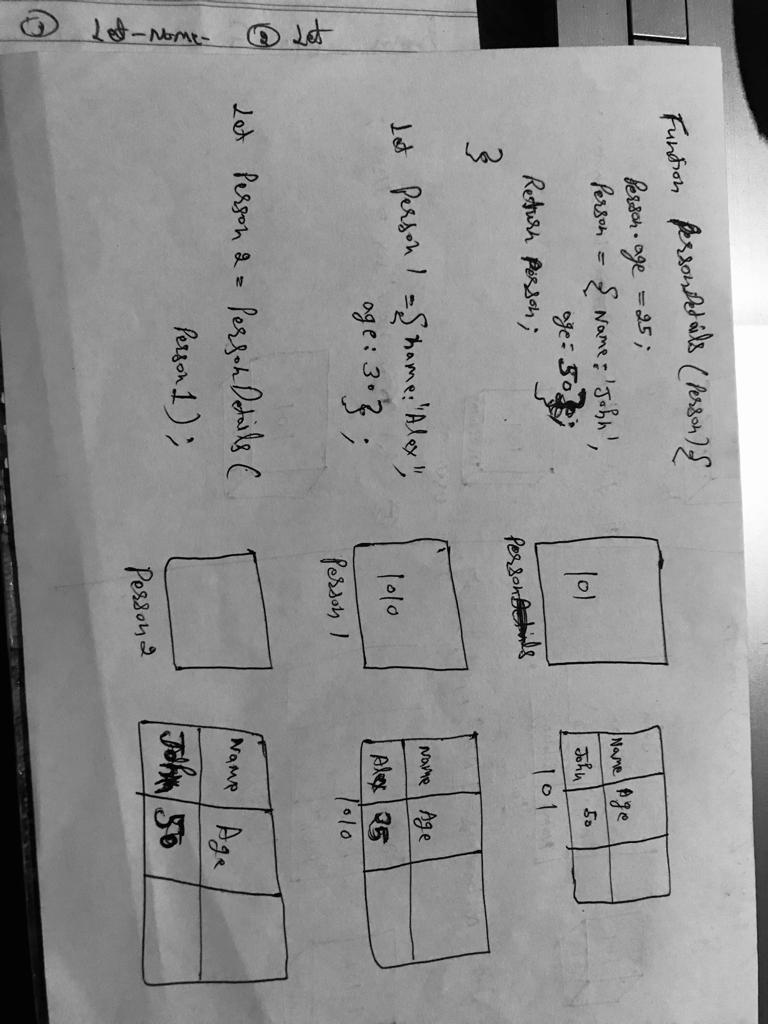 ① Let-Name- ② Let
Function PersonDetails (Person) {
Person.age = 25;
Person = { Name = 'John',
age = 50};
Return Person;
}
Let Person 1 = { Name: "Alex",
age : 30} ;
Let Person 2 = PersonDetails (
Person 1 ) ;
101
Person
Name Age
John 50
101
1010
Person 1
Name Age
Alex 25
1010
Person 2
Name Age
John 50